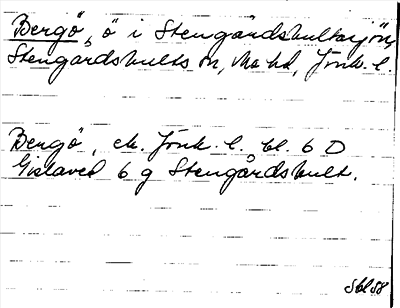 Bergö, ö i Stengårdshultasjön,
Stengårdshults sn, Mo hd, Jönk. l.
Bergö, ek. Jönk. l. bl. 6 D
Gislaved 6 g Stengårdshult.
Sbl 58